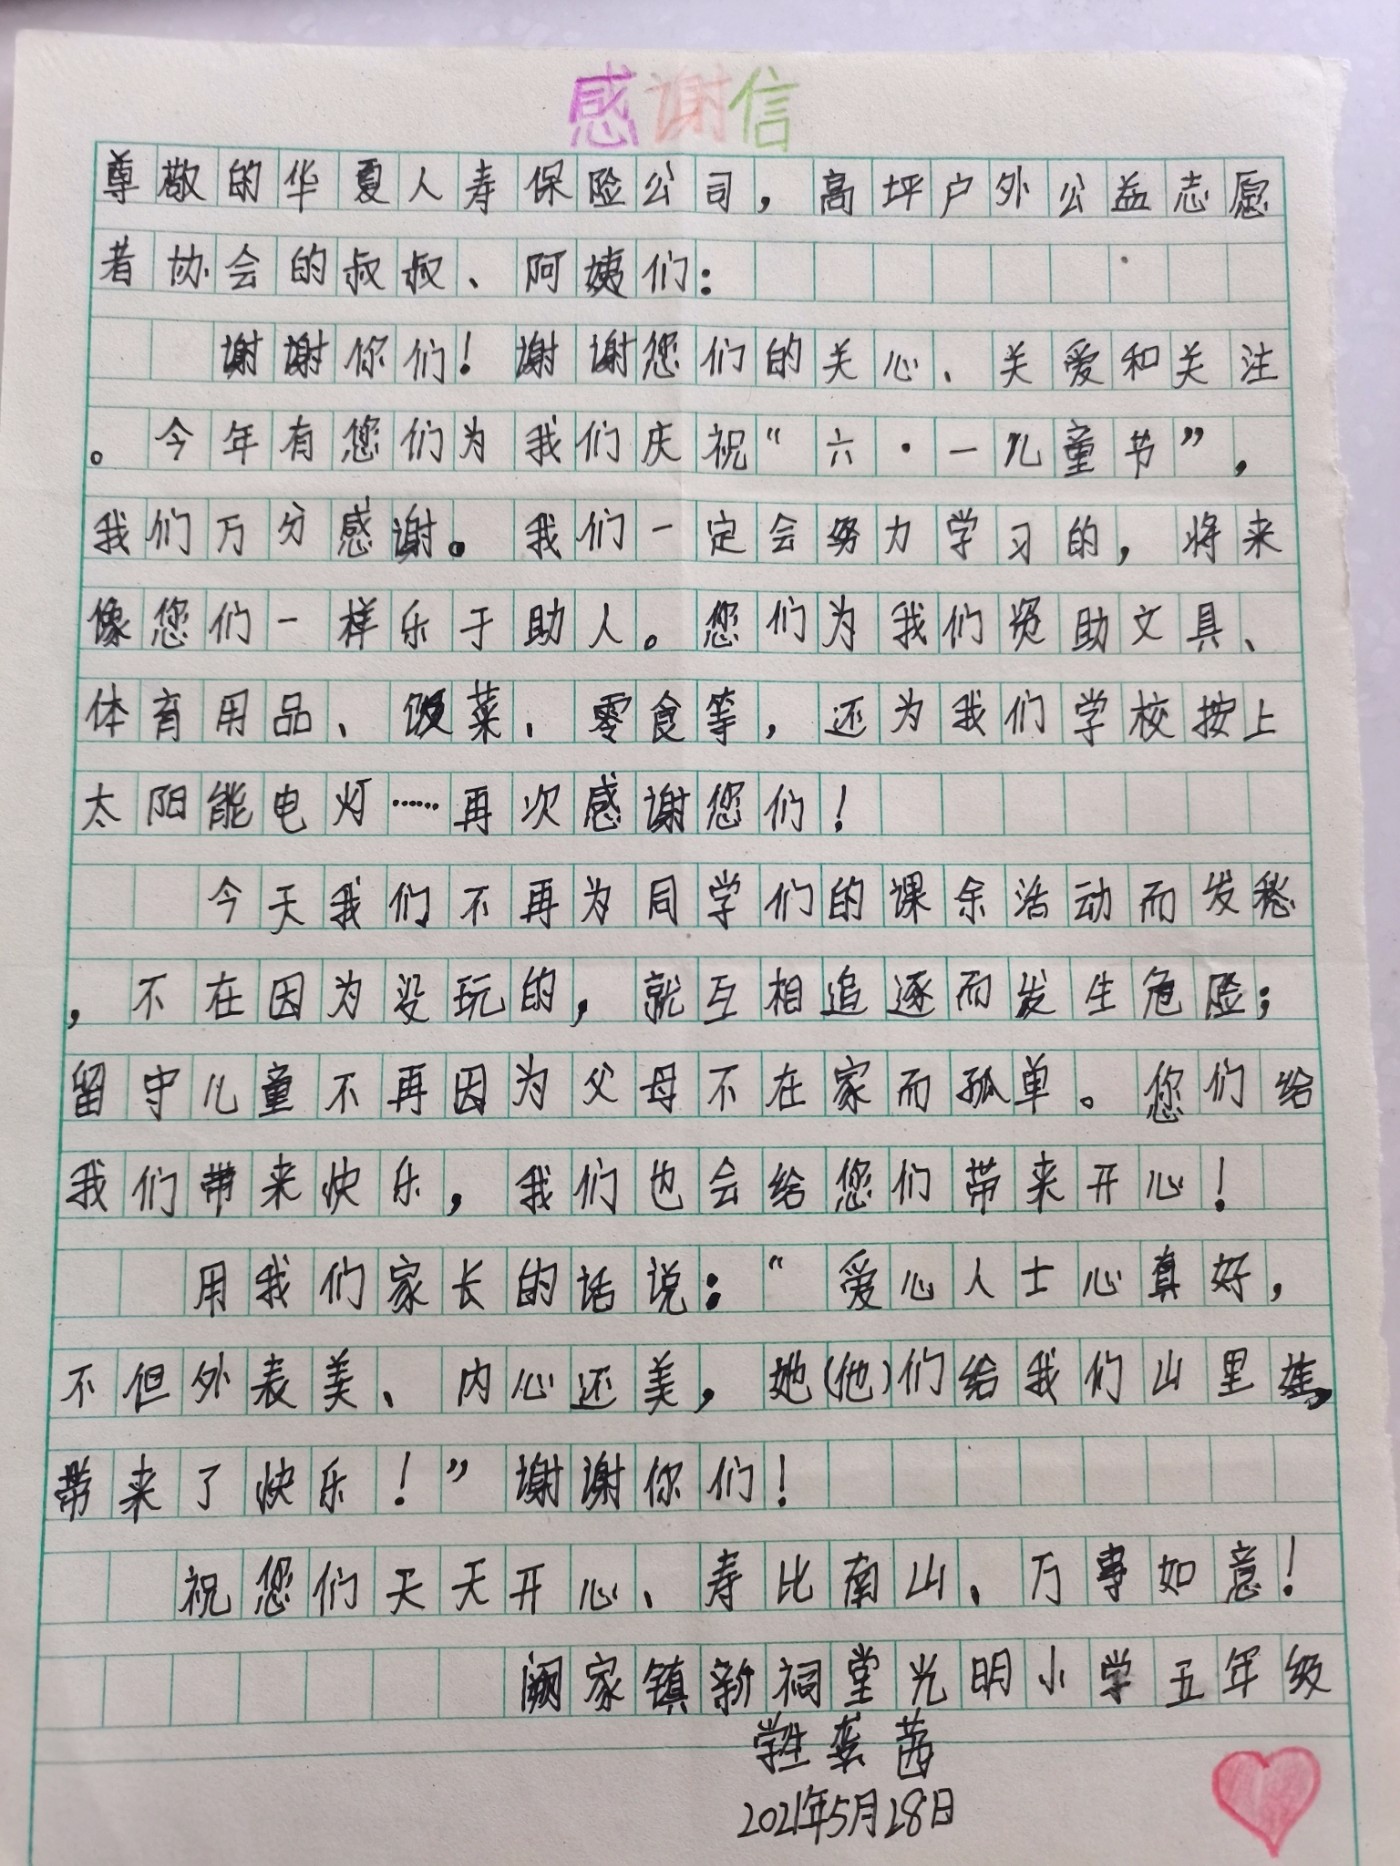 感谢信
尊敬的华夏人寿保险公司，高坪户外公益志愿
者协会的叔叔、阿姨们：
谢谢你们！谢谢您们的关心、关爱和关注
。今年有您们为我们庆祝“六·一儿童节”，
我们万分感谢。我们一定会努力学习的，将来
像您们一样乐于助人。您们为我们资助文具、
体育用品、饭菜、零食等，还为我们学校按上
太阳能电灯……再次感谢您们！
今天我们不再为同学们的课余活动而发愁
，不在因为没玩的，就互相追逐而发生危险；
留守儿童不再因为父母不在家而孤单。您们给
我们带来快乐，我们也会给您们带来开心！
用我们家长的话说：“爱心人士心真好，
不但外表美、内心还美，她(他)们给我们山里娃，
带来了快乐！”谢谢你们！
祝您们天天开心、寿比南山、万事如意！
阙家镇新祠堂光明小学五年级
学生 茜
2021年5月28日